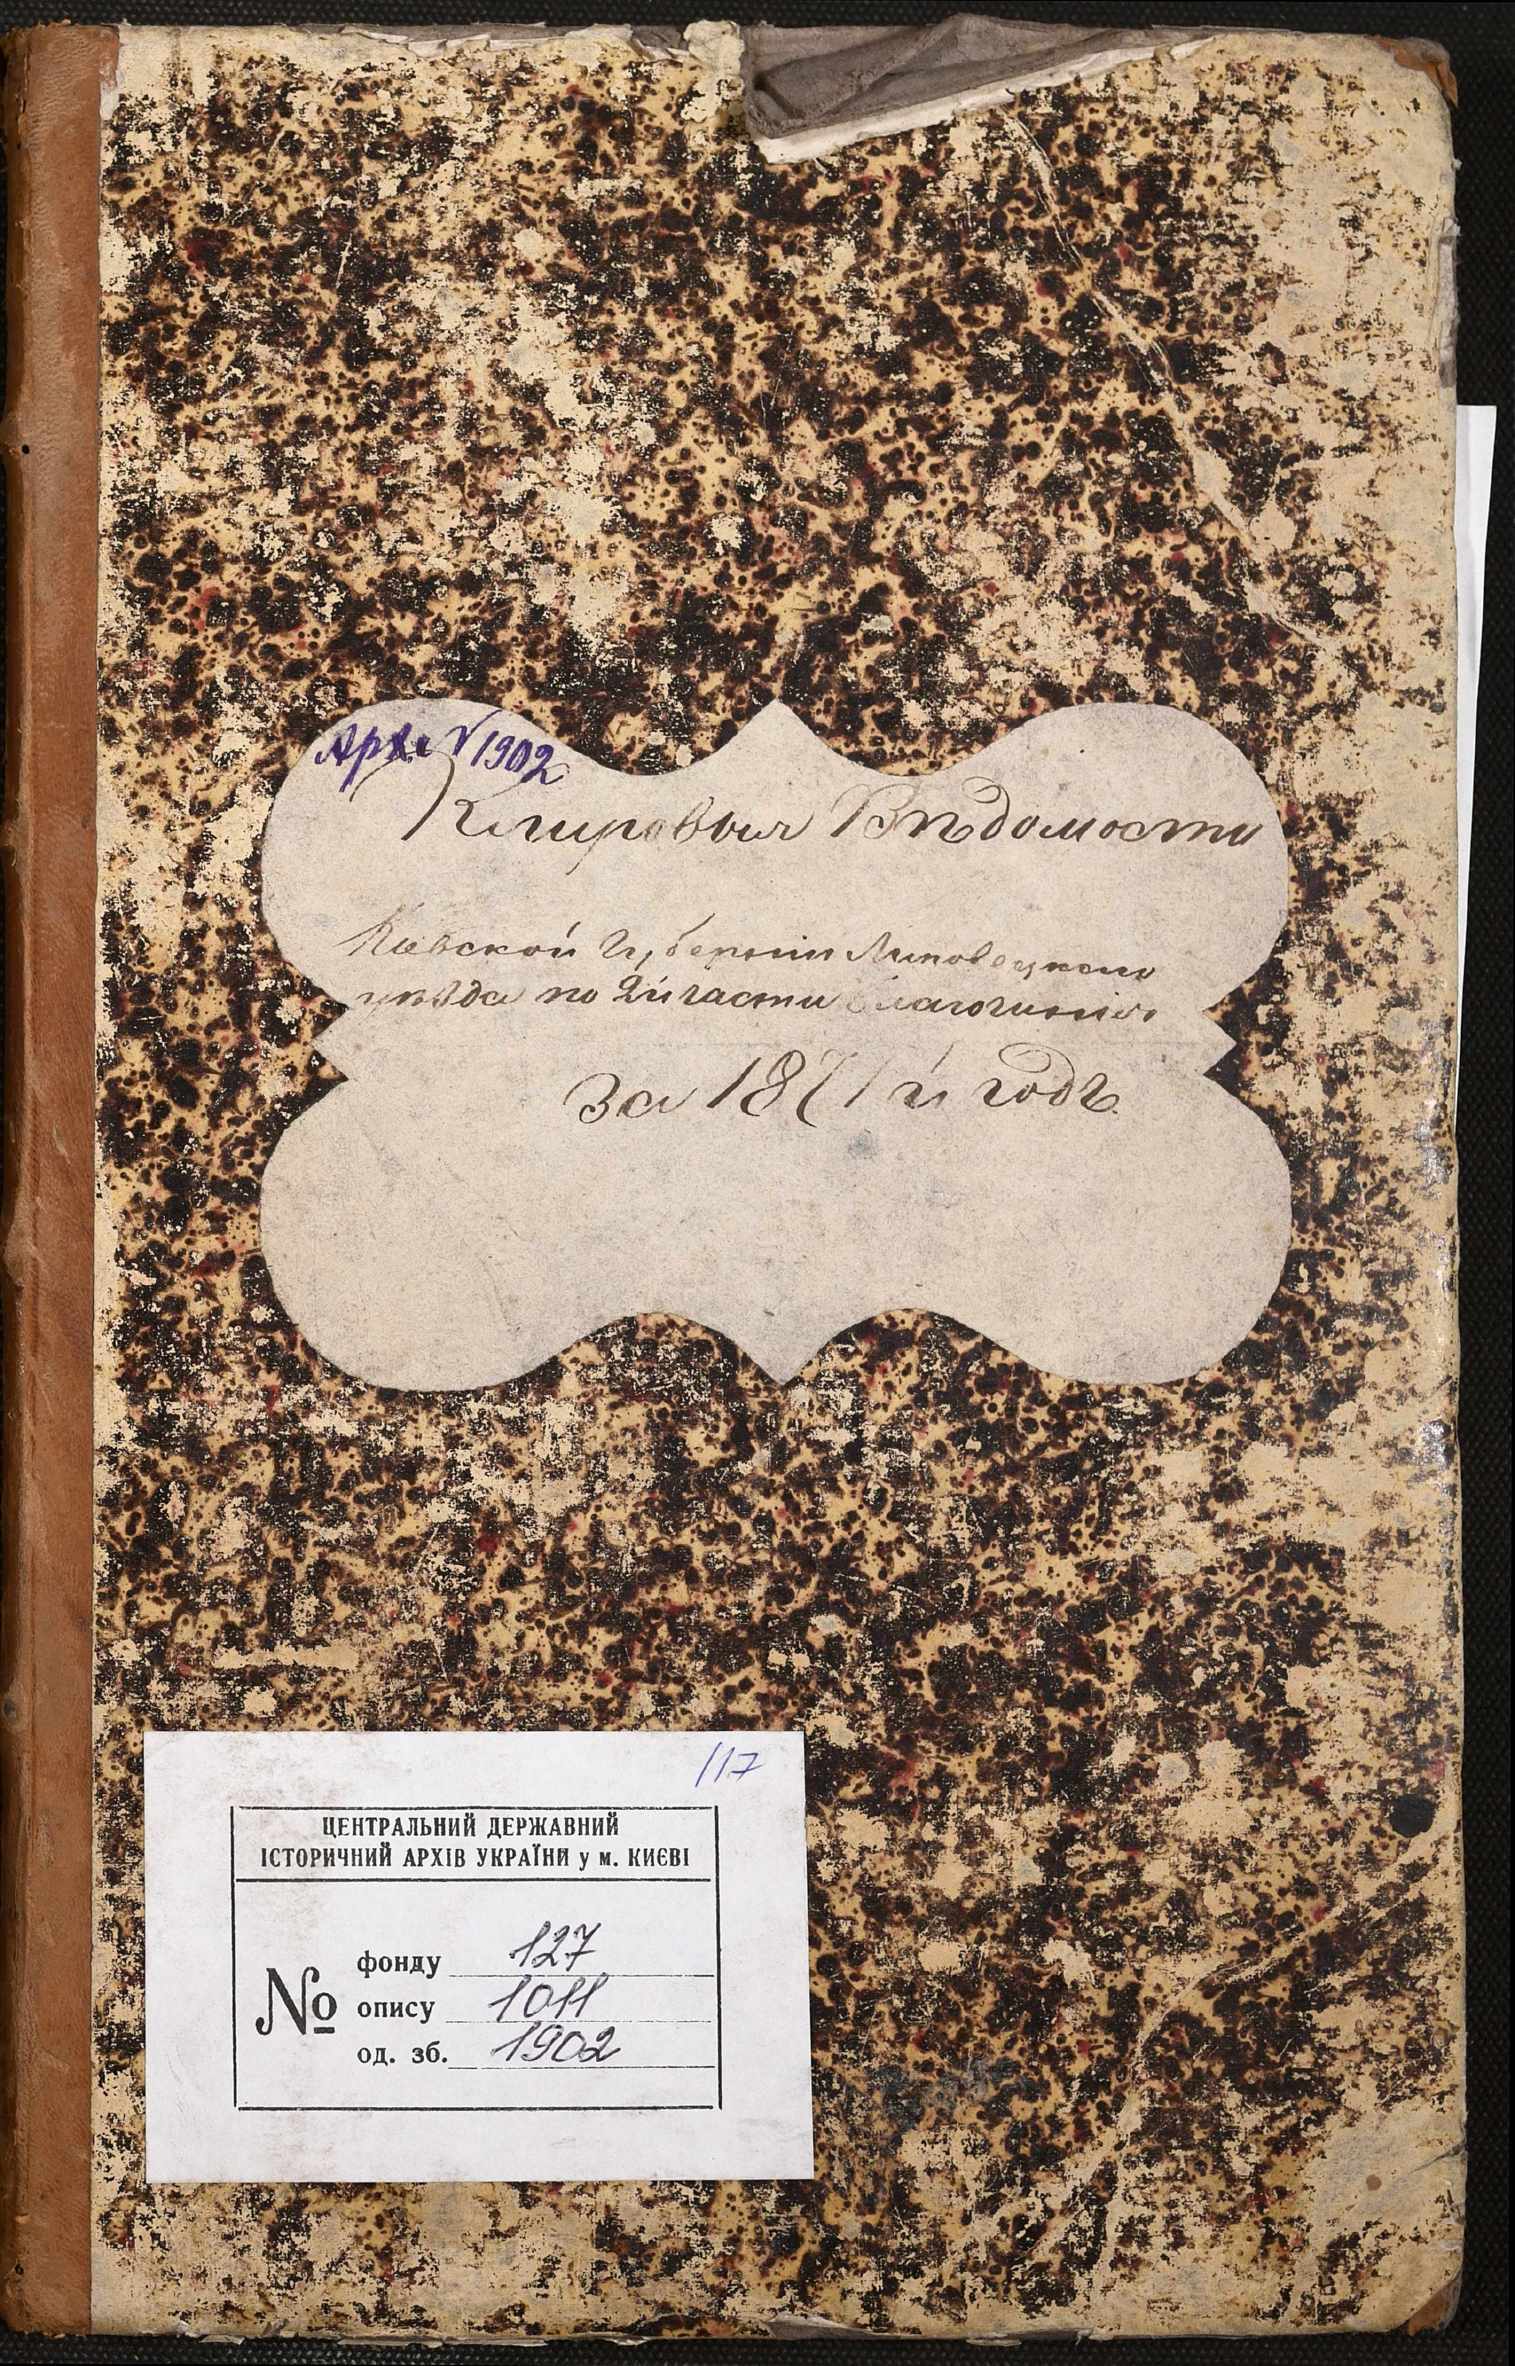 Арх. № 1902
Клировыя Вѣдомости
Кіевской Губерніи Липовецкаго
уѣзда по 2й части благочинія
за 1871й годъ
117
ЦЕНТРАЛЬНИЙ ДЕРЖАВНИЙ
ІСТОРИЧНИЙ АРХІВ УКРАЇНИ у м. КИЄВІ
№
фонду 127
опису 1011
од. зб. 1902